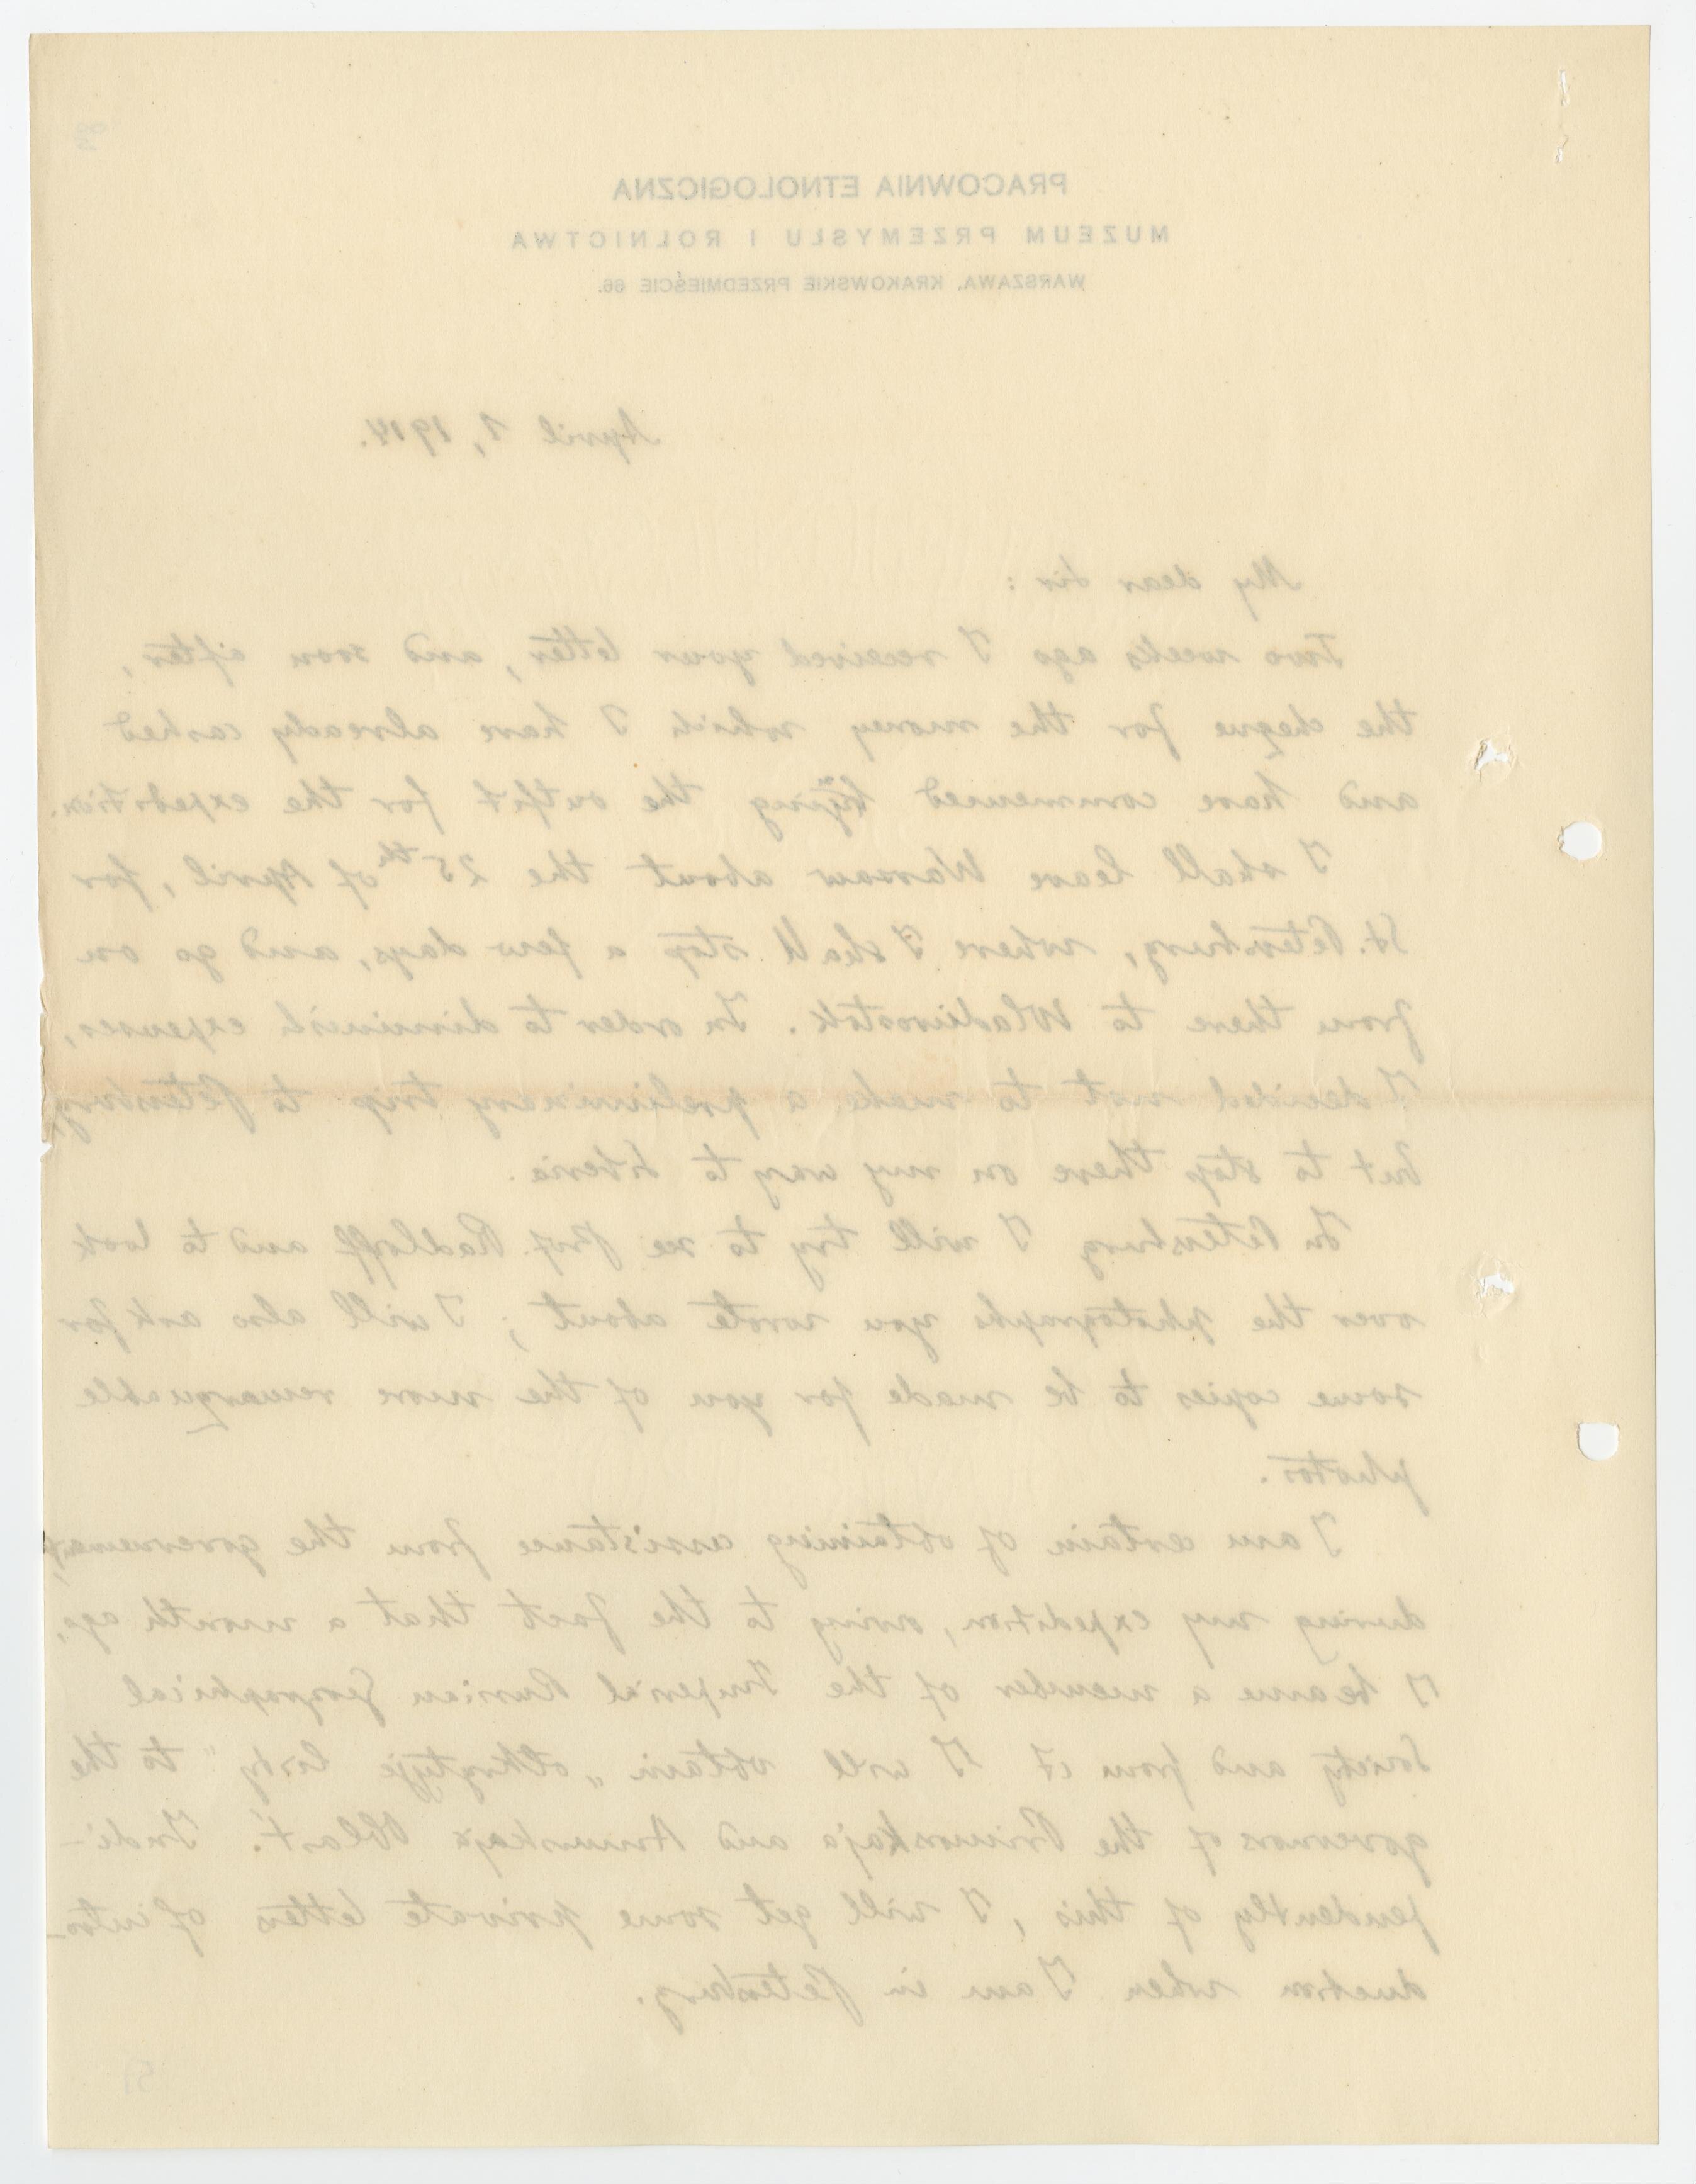 PRACOWNIA ETNOLOGICZNA
MUZEUM PRZEMYSŁU I ROLNICTWA
WARSZAWA, KRAKOWSKIE PRZEDMIEŚCIE 66.
April 1, 1914.
My dear Sir :
Two weeks ago I received your letter, and soon after,
the cheque for the money which I have already cashed
and have commenced the outfit for the expedition.
I shall leave Warsaw about the 25th of April, for
St. Petersburg, where I shall stop a few days, and go on
from there to Wladiwostok. In order to diminish expenses,
I decided not to make a preliminary trip to Petersburg,
but to stop there on my way to Siberia.
In Petersburg I will try to see Prof. Radloff and to look
over the photographs you wrote about ; I will also ask for
some copies to be made for you of the more remarquable
photos.
I am certain of obtaining assistance from the government,
during my expedition, owing to the fact that a month ago,
I became a member of the Imperial Russian Geographical
Society and from it I will obtain „otkrytyje listy" to the
governors of the Primorskaja and Amurskaja Oblast'. Inde-
pendently of this, I will get some private letters of intro-
duction when I am in Petersburg.
51